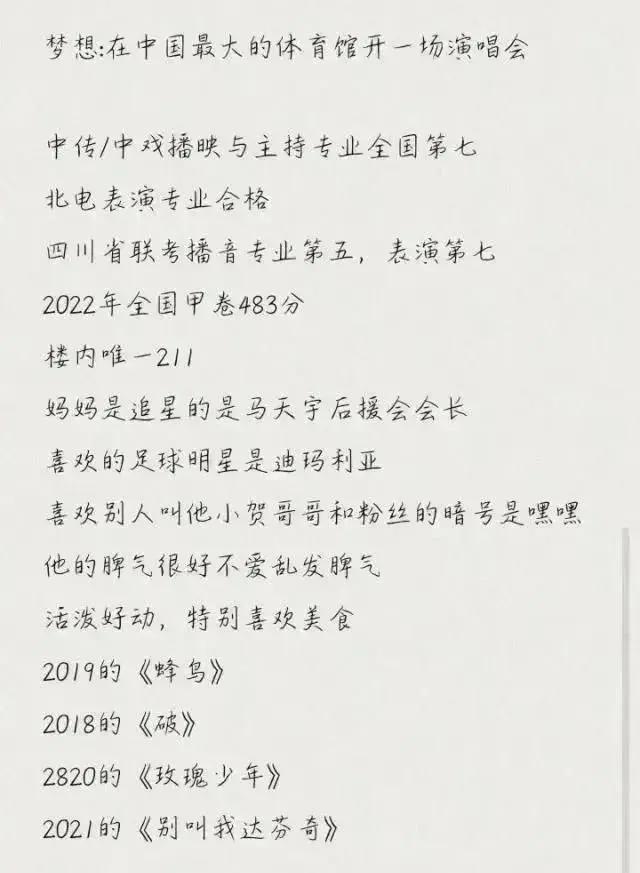 梦想:在中国最大的体育馆开一场演唱会
中传/中戏播映与主持专业全国第七
北电表演专业合格
四川省联考播音专业第五，表演第七
2022年全国甲卷483分
楼内唯一211
妈妈是追星的是马天宇后援会会长
喜欢的足球明星是迪玛利亚
喜欢别人叫他小贺哥哥和粉丝的暗号是嘿嘿
他的脾气很好不爱乱发脾气
活泼好动，特别喜欢美食
2019的《蜂鸟》
2018的《破》
2820的《玫瑰少年》
2021的《别叫我达芬奇》